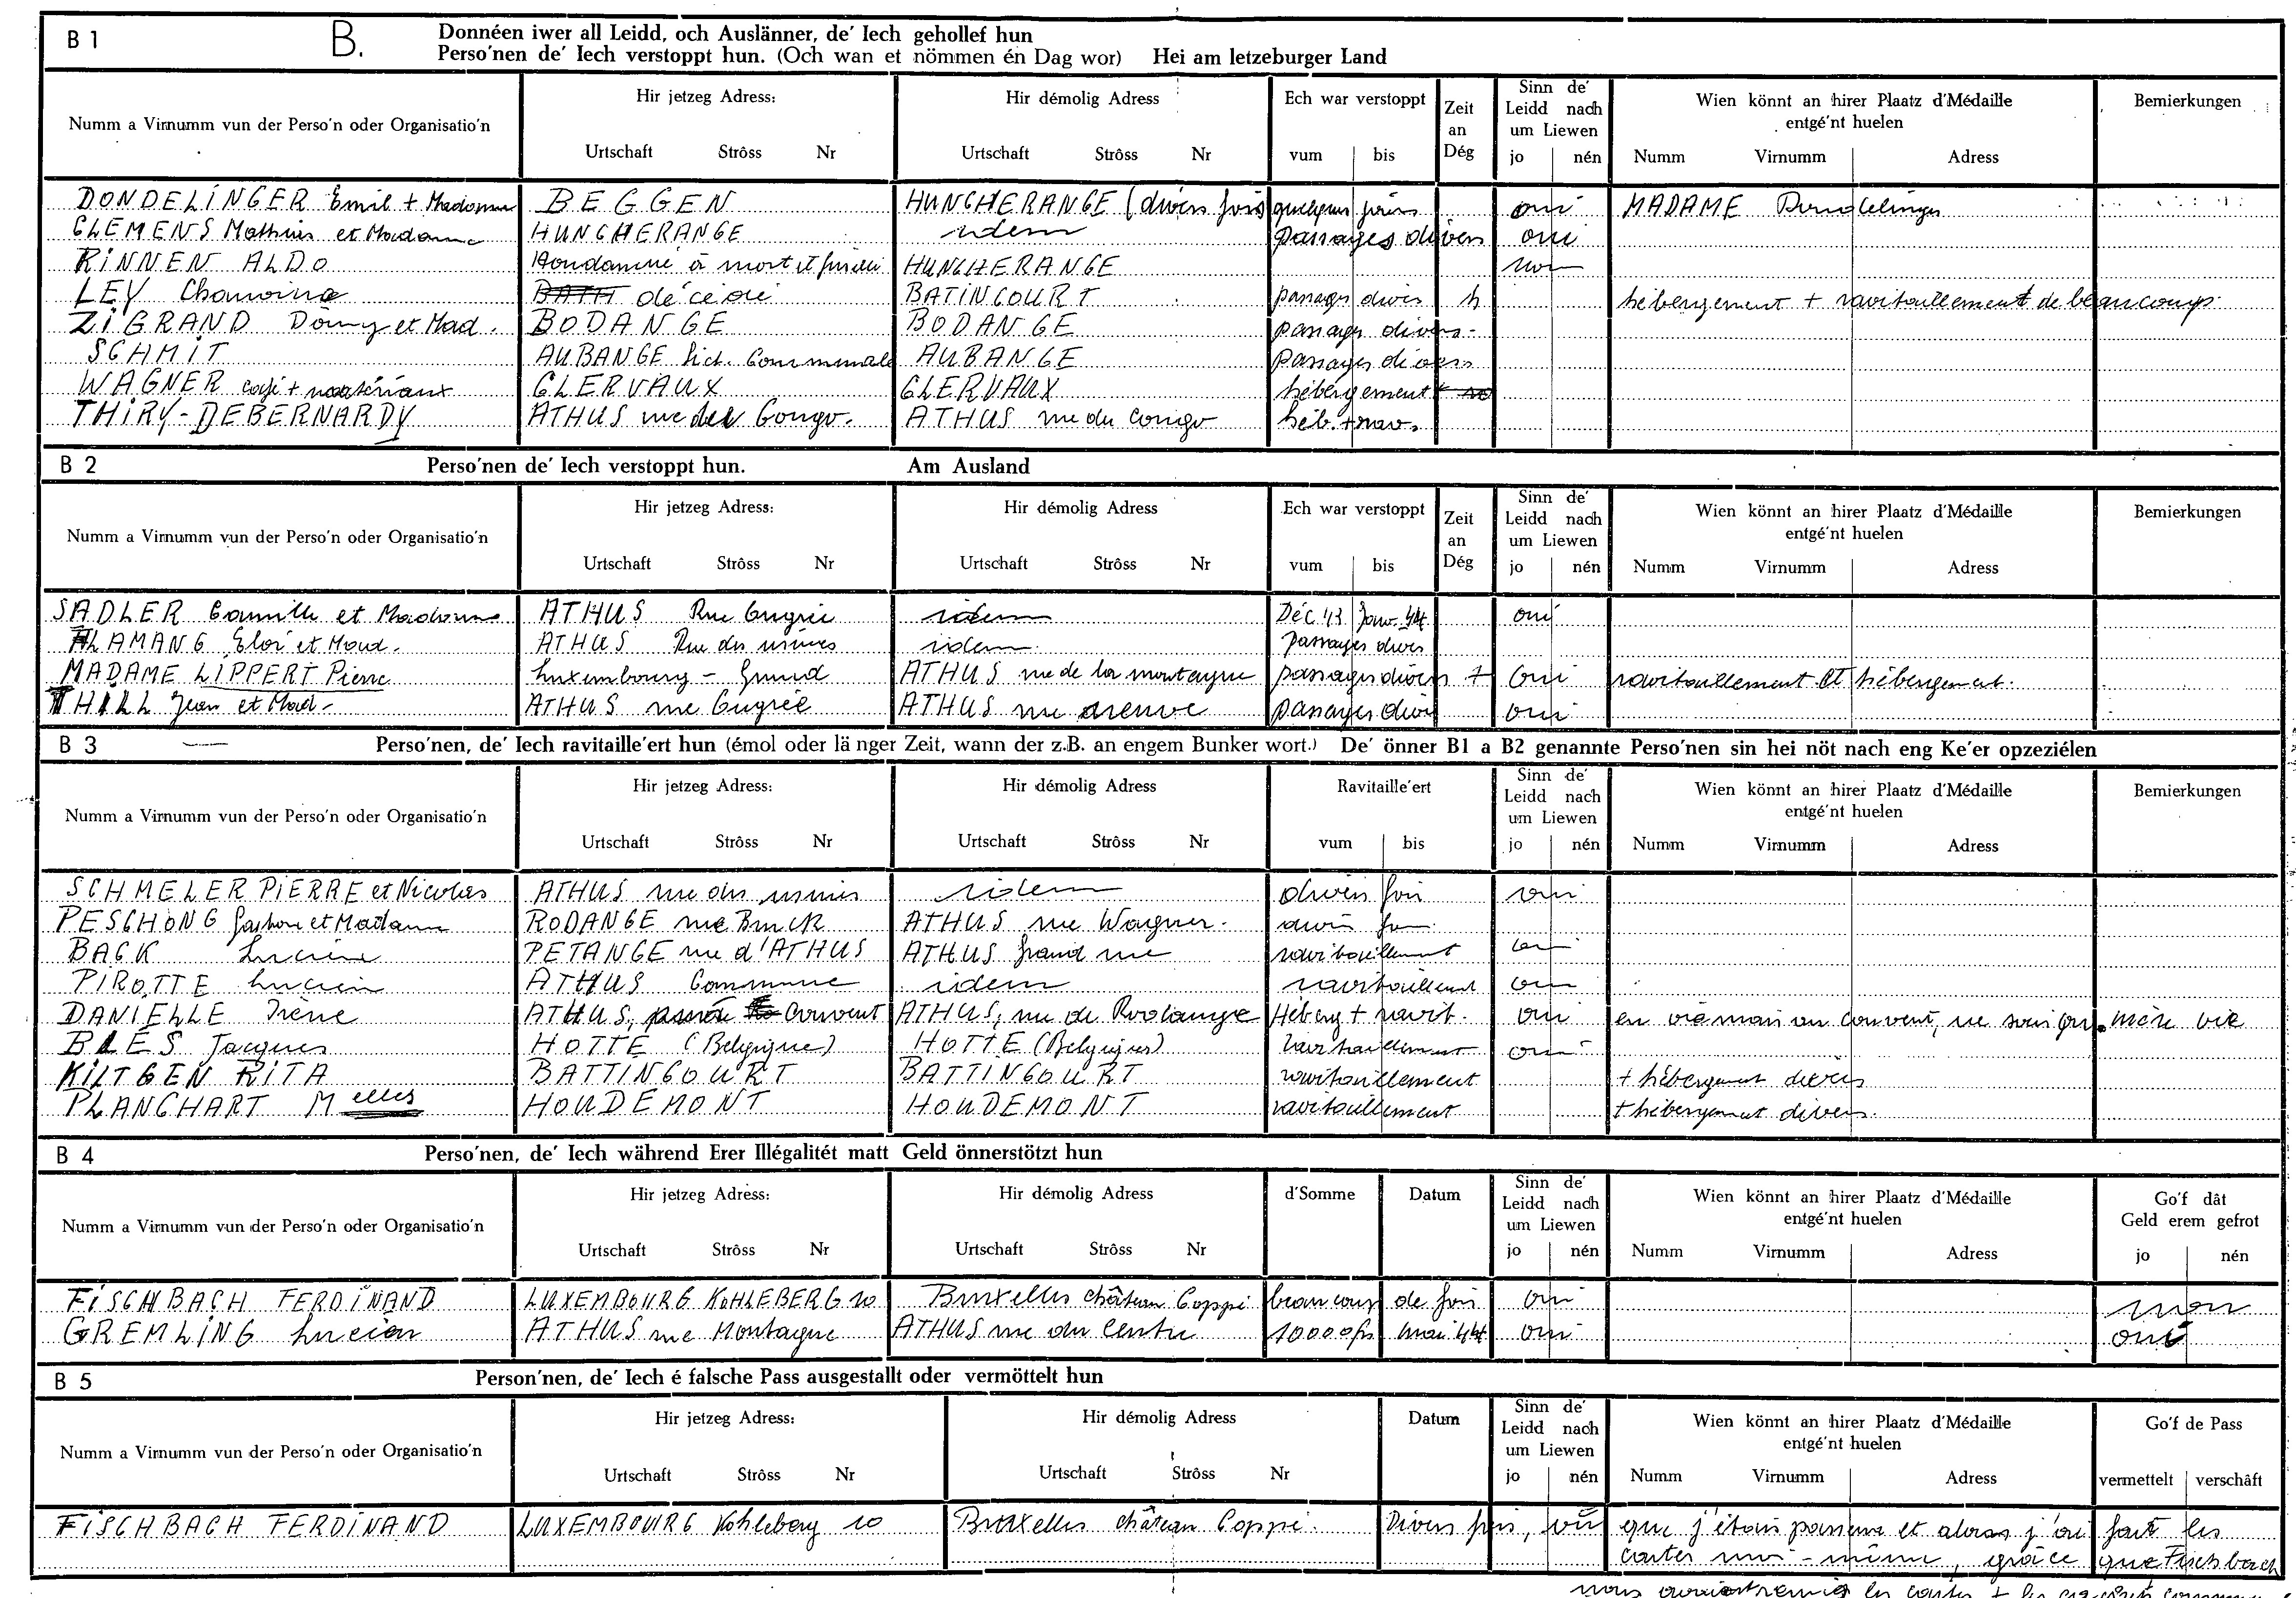 B 1 B. Donnéen iwer all Leidd, och Auslänner, de' Iech gehollef hun
Perso'nen de' Iech verstoppt hun. (Och wan et nömmen én Dag wor) Hei am letzeburger Land
Numm a Virnumm vun der Perso'n oder Organisatio'n
Hir jetzeg Adress:
Urtschaft Strôss Nr
Hir démolig Adress
Urtschaft Strôss Nr
Ech war verstoppt
vum bis
Zeit
an
Dég
Sinn de'
Leidd nach
um Liewen
jo nén
Wien könnt an hirer Plaatz d'Médaille
entgé'nt huelen
Numm Virnumm Adress
Bemierkungen
DONDELINGER Emil + Madame BEGGEN HUNCHERANGE (divers fois quelques jours oui MADAME Dondelinger
CLEMENS Mathias et Madame HUNCHERANGE idem passages divers oui
RINNEN ALDO Kondamné à mort et fusillé HUNCHERANGE non
LEY Chanoine décédé BATINCOURT passages divers hébergement + ravitaillement de beaucoup
ZIGRAND Domy et Mad. BODANGE BODANGE passages divers
SCHMIT AUBANGE Communale AUBANGE passages divers
WAGNER café + matériaux CLERVAUX CLERVAUX hébergement
THIRY-DEBERNARDY ATHUS rue du Congo. ATHUS rue du Congo héb. + rav.
B 2 Perso'nen de' Iech verstoppt hun. Am Ausland
Numm a Virnumm vun der Perso'n oder Organisatio'n
Hir jetzeg Adress:
Urtschaft Strôss Nr
Hir démolig Adress
Urtschaft Strôss Nr
Ech war verstoppt
vum bis
Zeit
an
Dég
Sinn de'
Leidd nach
um Liewen
jo nén
Wien könnt an hirer Plaatz d'Médaille
entgé'nt huelen
Numm Virnumm Adress
Bemierkungen
SADLER Camille et Madame ATHUS Rue Ougrée idem Déc 43 Janv. 44 oui
ALAMANG Eloi et Mad. ATHUS Rue des usines idem passages divers
MADAME LIPPERT Pierre Luxembourg - Grund ATHUS rue de la montagne passages divers + oui ravitaillement et hébergement.
THILL Jean et Mad. ATHUS rue Ougrée ATHUS rue neuve passages divers oui
B 3 Perso'nen, de' Iech ravitaille'ert hun (émol oder länger Zeit, wann der z.B. an engem Bunker wort.) De' önner B1 a B2 genannte Perso'nen sin hei nöt nach eng Ke'er opzeziélen
Numm a Virnumm vun der Perso'n oder Organisatio'n
Hir jetzeg Adress:
Urtschaft Strôss Nr
Hir démolig Adress
Urtschaft Strôss Nr
Ravitaille'ert
vum bis
Sinn de'
Leidd nach
um Liewen
jo nén
Wien könnt an hirer Plaatz d'Médaille
entgé'nt huelen
Numm Virnumm Adress
Bemierkungen
SCHMELER PIERRE et Nicolas ATHUS rue des usines idem divers fois oui
PESCHONG Gaston et Madame RODANGE rue Brück ATHUS rue Wagner. divers fois
BACK Lucien PETANGE rue d'ATHUS ATHUS Grand rue ravitaillement oui
PIROTTE Lucien ATHUS Commune idem ravitaillement oui
DANIELLE Irène ATHUS, Couvent ATHUS, rue de Rodange Héberg + ravit. oui en vie mais au couvent, ne sais qu. mère vie
BLES Jacques HOTTE (Belgique) HOTTE (Belgique) ravitaillement oui
KILTGEN RITA BATTINCOURT BATTINCOURT ravitaillement + hébergement divers
PLANCHART Melles HOUDEMONT HOUDEMONT ravitaillement + hébergement divers.
B 4 Perso'nen, de' Iech während Erer Illégalitét matt Geld önnerstötzt hun
Numm a Virnumm vun der Perso'n oder Organisatio'n
Hir jetzeg Adress:
Urtschaft Strôss Nr
Hir démolig Adress
Urtschaft Strôss Nr
d'Somme
Datum
Sinn de'
Leidd nach
um Liewen
jo nén
Wien könnt an hirer Plaatz d'Médaille
entgé'nt huelen
Numm Virnumm Adress
Go'f dât
Geld erem gefrot
jo nén
FISCHBACH FERDINAND LUXEMBOURG KOHLEBERG 10 Bruxelles château Coppé beaucoup de fois oui non
GREMLING Lucien ATHUS rue Montagne ATHUS rue du Centre 10000 frs mai 44 oui oui
B 5 Person'nen, de' Iech é falsche Pass ausgestallt oder vermöttelt hun
Numm a Virnumm vun der Perso'n oder Organisatio'n
Hir jetzeg Adress:
Urtschaft Strôss Nr
Hir démolig Adress
Urtschaft Strôss Nr
Datum
Sinn de'
Leidd nach
um Liewen
jo nén
Wien könnt an hirer Plaatz d'Médaille
entgé'nt huelen
Numm Virnumm Adress
Go'f de Pass
vermettelt verschâft
FISCHBACH FERDINAND LUXEMBOURG Kohleberg 10 Bruxelles château Coppé. Divers fois, vû que j'étais passeur et alors j'ai fait les
cartes moi-même, grâce que Fischbach
nous avait remis les cartes + les